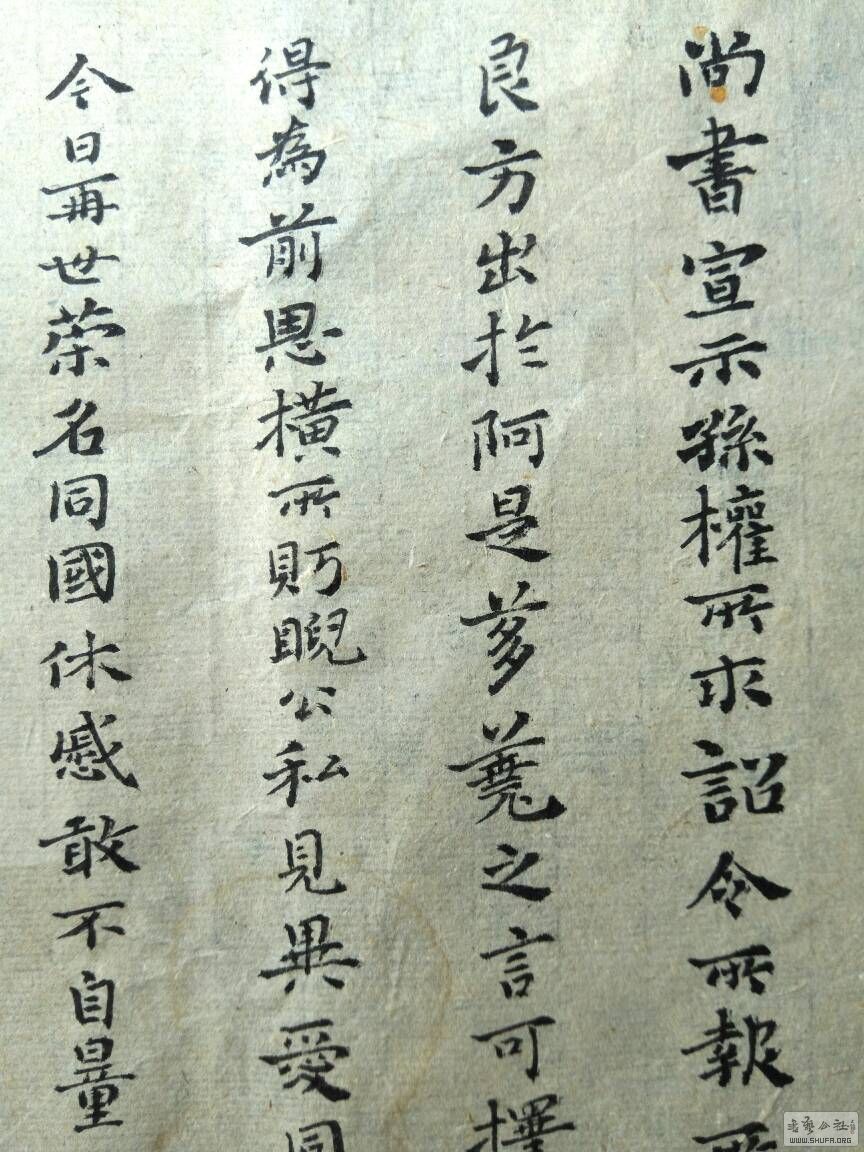 尚書宣示孫權所求詔令所報所
良方出於阿是芻蕘之言可擇
得為前恩橫所眄睨公私見異愛同
今日再世榮名同國休慼敢不自量
书艺公社
WWW.SHUFA.ORG